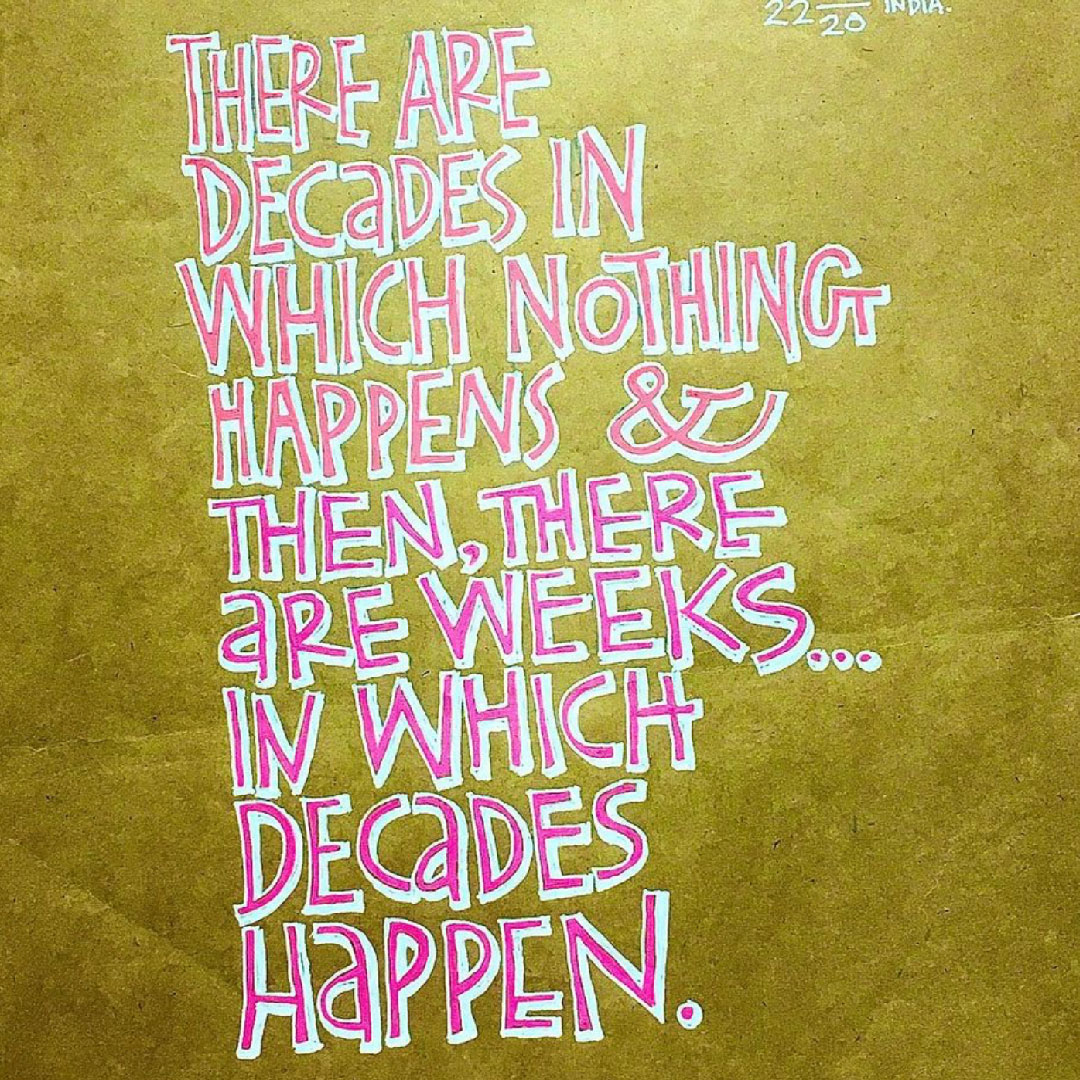 22 20 INDIA.
THERE ARE
DECaDES IN
WHICH NOTHING
HAPPENS &
THEN, THERE
aRE WEEKS...
IN WHICH
DECaDES
HaPPEN.